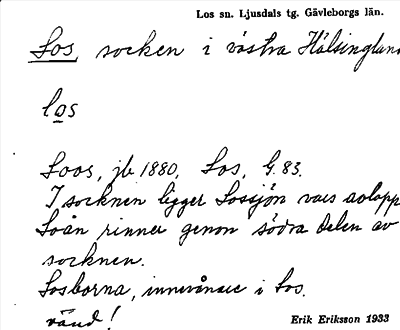 Los sn. Ljusdals tg. Gävleborgs län.
Los, socken i västra Hälsingland
los
Loos, jb 1880, Los, G. 83.
I socknen ligger Lossjön vars avlopp
Loån rinner genom södra delen av
socknen.
Losborna, innevånare i Los.
vänd!
Erik Eriksson 1933